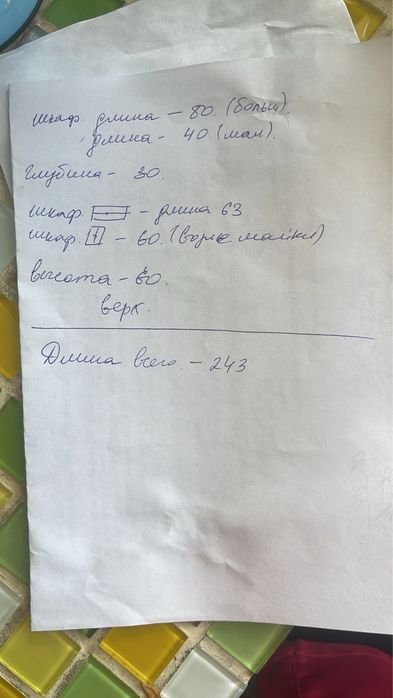 шкаф. длина – 80. (больш).
длина – 40. (мал).
глубина – 30.
шкаф. – длина 63.
шкаф. – 60. (возле мойки)
высота – 60.
верх.
Длина всего. – 243